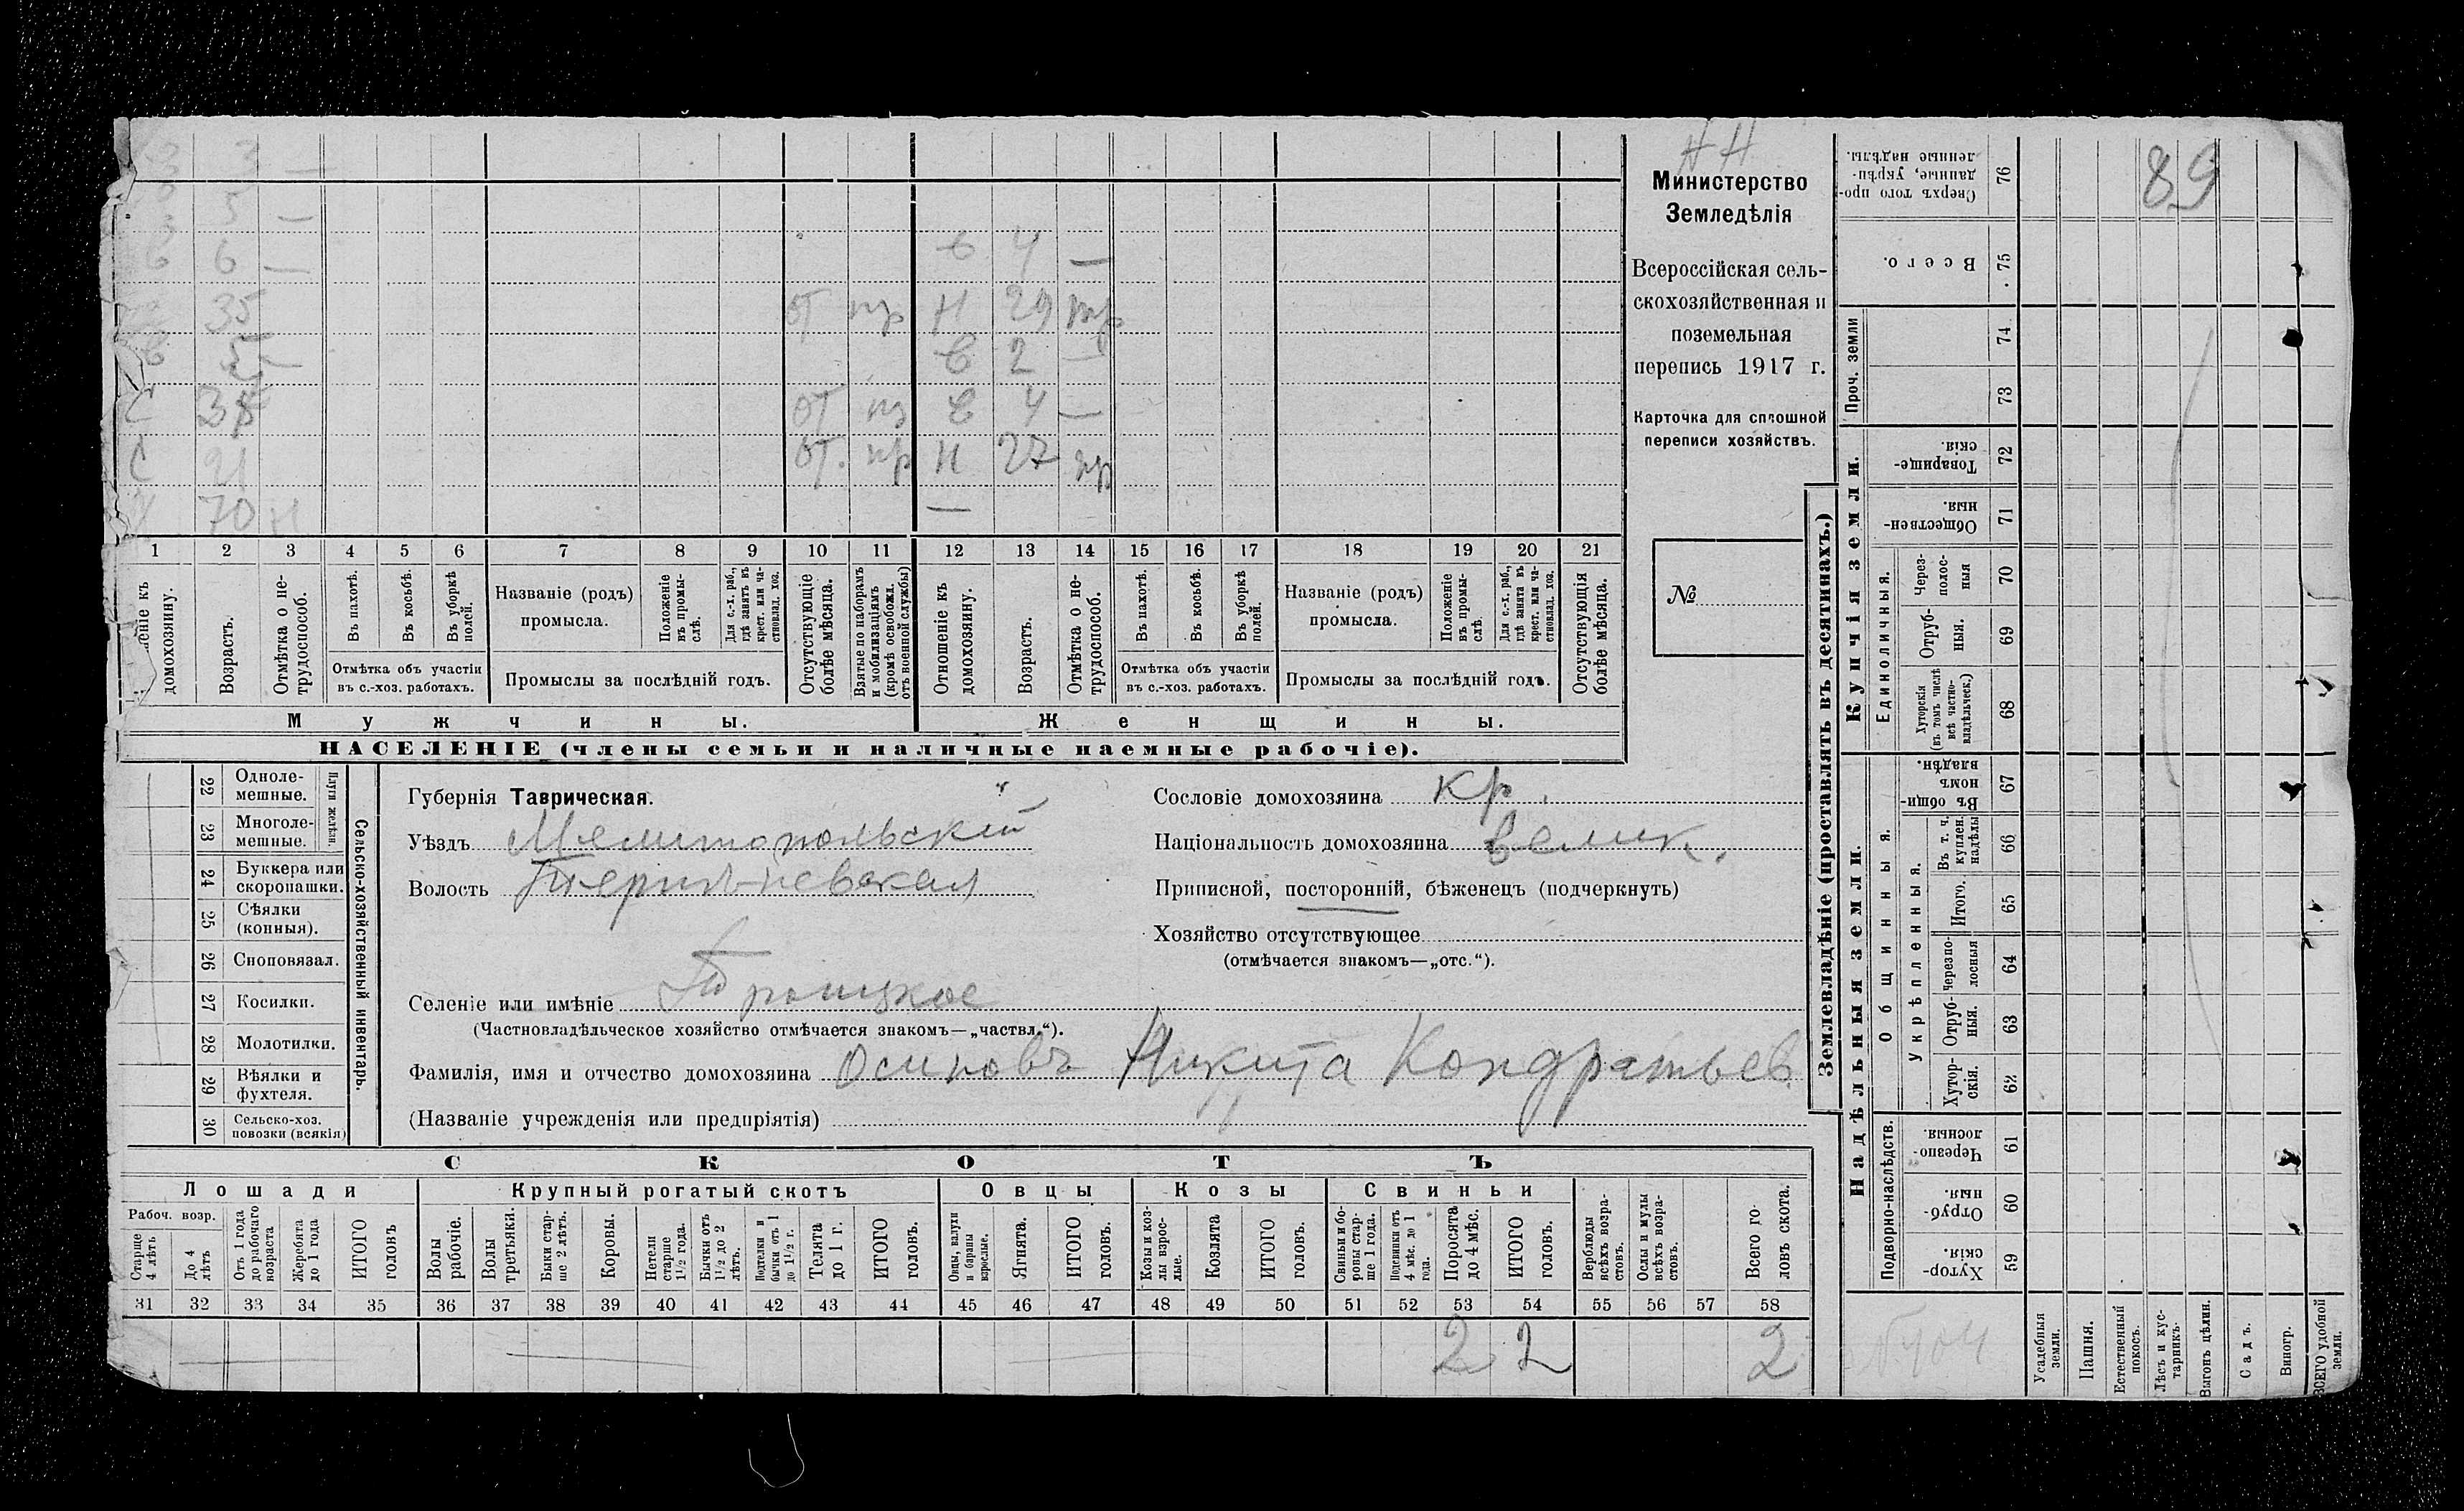 3 3 —
3 5 —
в 6 — в 4 —
35 от пр Н 29 пр
в 5 — в 2 —
С 38 от пр в 4 —
С 21 от. пр Н 27 пр
Х 70 Н —
1 2 3 4 5 6 7 8 9 10 11 12 13 14 15 16 17 18 19 20 21
домохозяину.
Возрастъ.
Отмѣтка о не-
трудоспособ.
Въ пахотѣ.
Въ косьбѣ.
Въ уборкѣ
полей.
Отмѣтка объ участіи
въ с.-хоз. работахъ.
Названіе (родъ)
промысла.
Положеніе
въ промы-
слѣ.
Для с.-х. раб.,
гдѣ занятъ въ
крест. или ча-
стновлад. хоз.
Промыслы за послѣдній годъ.
Отсутствующіе
болѣе мѣсяца.
Взятые по наборамъ
и мобилизаціямъ
(кромѣ освобожд.
отъ военной службы)
Отношеніе къ
домохозяину.
Возрастъ.
Отмѣтка о не-
трудоспособ.
Въ пахотѣ.
Въ косьбѣ.
Въ уборкѣ
полей.
Отмѣтка объ участіи
въ с.-хоз. работахъ.
Названіе (родъ)
промысла.
Положеніе
въ промы-
слѣ.
Для с.-х. раб.,
гдѣ занята въ
крест. или ча-
стновлад. хоз.
Промыслы за послѣдній годъ.
Отсутствующія
болѣе мѣсяца.
Мужчины.
Женщины.
НАСЕЛЕНІЕ (члены семьи и наличные наемные рабочіе).
Министерство
Земледѣлія
Всероссійская сель-
скохозяйственная и
поземельная
перепись 1917 г.
Карточка для сплошной
переписи хозяйствъ.
№
22 Одноле-
мешные.
23 Многоле-
мешные.
Плуги желѣзн.
24 Буккера или
скоропашки.
25 Сѣялки
(конныя).
26 Сноповязал.
27 Косилки.
28 Молотилки.
29 Вѣялки и
фухтеля.
30 Сельско-хоз.
повозки (всякія)
Сельско-хозяйственный инвентарь.
Губернія Таврическая.
Уѣздъ Мелитопольскій
Волость
Селеніе или имѣніе Троицкое
(Частновладѣльческое хозяйство отмѣчается знакомъ—„частвл.“).
Фамилія, имя и отчество домохозяина Осиповъ Никита Кондратьев
(Названіе учрежденія или предпріятія)
Сословіе домохозяина кр.
Національность домохозяина велик.
Приписной, посторонній, бѣженецъ (подчеркнуть)
Хозяйство отсутствующее
(отмѣчается знакомъ—„отс.“).
СКОТЪ
Лошади
Рабоч. возр.
Старше
4 лѣтъ
До 4
лѣтъ
Отъ 1 года
до рабочаго
возраста
Жеребята
до 1 года
ИТОГО
головъ
Крупный рогатый скотъ
Волы
рабочіе.
Волы
третьяки.
Быки стар-
ше 2 лѣтъ.
Коровы.
Нетели
старше
1½ года.
Бычки отъ
1½ до 2
лѣтъ.
Подтелки и
бычки отъ 1
до 1½ г.
Телята
до 1 г.
ИТОГО
головъ.
Овцы
Овцы, валухи
и бараны
взрослые.
Ягнята.
ИТОГО
головъ.
Козы
Козы и коз-
лы взрос-
лые.
Козлята
ИТОГО
головъ.
Свиньи
Свиньи и бо-
ровы стар-
ше 1 года.
Подсвинки отъ
4 мѣс. до 1
года.
Поросята
до 4 мѣс.
ИТОГО
головъ.
Верблюды
всѣхъ возра-
стовъ.
Ослы и мулы
всѣхъ возра-
стовъ.
Всего го-
ловъ скота.
31 32 33 34 35 36 37 38 39 40 41 42 43 44 45 46 47 48 49 50 51 52 53 54 55 56 57 58
2 2 2
Землевладѣніе (проставлять въ десятинахъ.)
Купчія земли.
Надѣльныя земли.
89
Сверхъ того про-
данные, укрѣп-
ленные надѣлы.
76
Всего.
75
Проч. земли
74
73
Товарище-
скія.
72
Обществен-
ныя.
71
Единоличныя.
Через-
полос-
ныя
70
Отруб-
ныя.
69
Хуторскія
(въ томъ числѣ
всѣ частно-
владѣльческ.)
68
Общинныя.
Въ общин-
номъ
владѣн.
67
Укрѣпленныя.
Въ т. ч.
куплен.
надѣлы
66
Итого.
65
Черезпо-
лосныя
64
Отруб-
ныя.
63
Хутор-
скія.
62
Подворно-наслѣдств.
Черезпо-
лосныя.
61
Отруб-
ныя.
60
Хутор-
скія.
59
Усадебныя
земли.
Пашня.
Естественный
покосъ.
Лѣсъ и кус-
тарникъ.
Выгонъ цѣлин.
Садъ.
Виногр.
ВСЕГО удобной
земли.